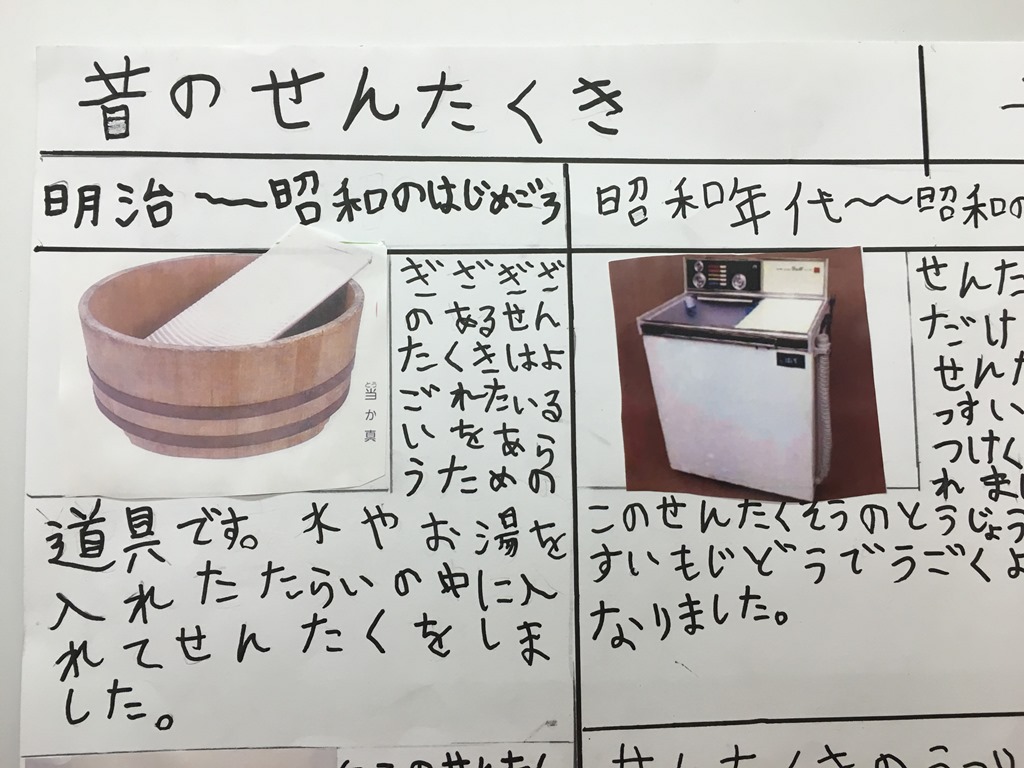 昔のせんたくき
明治〜昭和のはじめごろ
ぎざぎざ
のあるせん
たくきはよ
ごれたいる
いをあら
うための
道具です。水やお湯を
入れたたらいの中に入
れてせんたくをしま
した。
昭和年代〜昭和の
せんた
だけ
せんた
っすい
つけく
れま
このせんたくそうのとうじょう
すいもじどうでうごくよ
なりました。
せんたくきのうつり